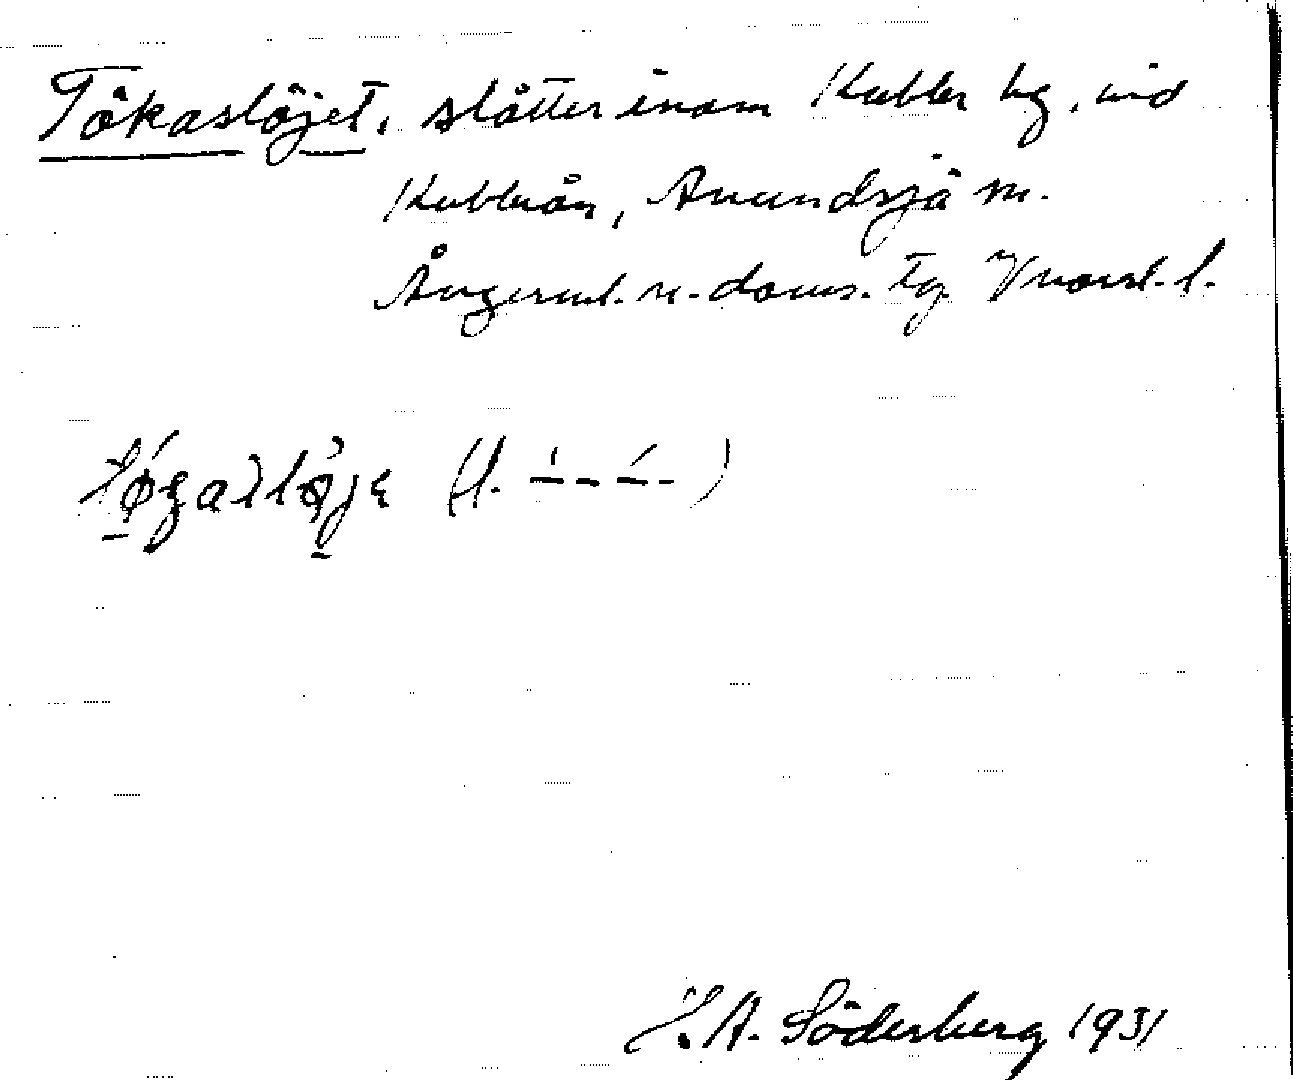 Tökaslöjet, slåtter inom Kubbe bg, vid
Kubbeån, Anundsjö sn.
Ångerml. n. doms. tg. Vnorrl. l.
(l.
H. A. Söderberg 1931